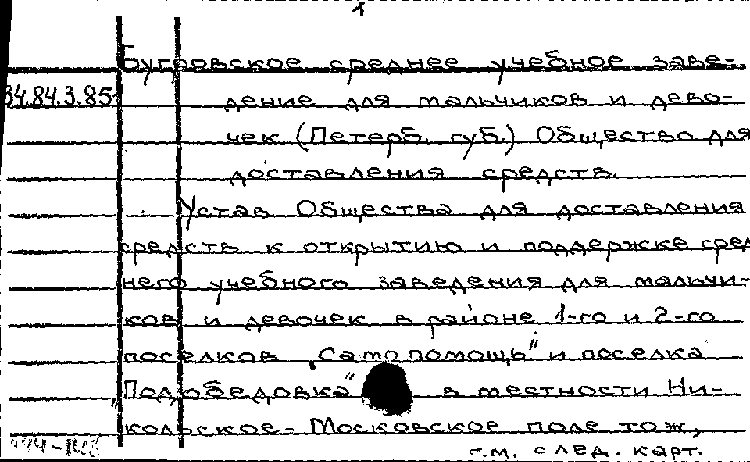 Бугровское среднее учебное заве-
34.84.3.85 дение для мальчиков и дево-
чек (Петерб. губ.) Общество для
доставления средств.
Устав Общества для доставления
средств к открытию и поддержке сред
него учебного заведения для мальчи-
ков и девочек в районе 1-го и 2-го
поселков "Самопомощь" и поселка
"Подобедовка" в местности Ни-
кольское-Московское поле тож,
см. след. карт.